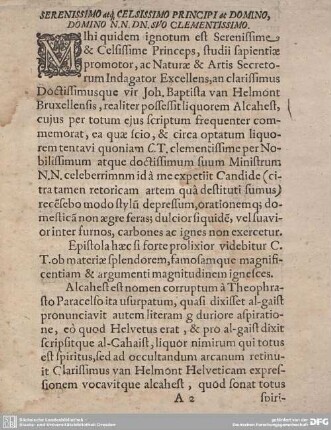 SERENISSIMO atq; CELSISSIMO PRINCIPI ac DOMINO,
DOMINO N.N. DN. SVO CLEMENTISSIMO.
MIhi quidem ignotum est Serenissime
& Celsissime Princeps, studii sapientiæ
promotor, ac Naturæ & Artis Secreto-
rum Indagator Excellens, an clarissimus
Doctissimusque vir Joh. Baptista van Helmont
Bruxellensis, realiter possessit liquorem Alcahest,
cujus per totum ejus scriptum frequenter com-
memorat, ea quæ scio, & circa optatum liquo-
rem tentavi quoniam C.T. clementissime per No-
bilissimum atque doctissimum suum Ministrum
N.N. celeberrimum id à me expetiit Candide (ci-
tra tamen retoricam artem quâ destituti sumus)
recēsebo modo stylū depressum, orationemq; do-
mesticā non ægre feras; dulcior siquidē, vel suavi-
or inter furnos, carbones ac ignes non exercetur.
Epistola hæc si forte prolixior videbitur C.
T. ob materiæ splendorem, famosamque magnifi-
centiam & argumenti magnitudinem ignosces.
Alcahest est nomen corruptum à Theophra-
sto Paracelso ita usurpatum, quasi dixisset al-gaist
pronunciavit autem literam g duriore aspiratio-
ne, eò quod Helvetus erat, & pro al-gaist dixit
scripsitque al-Cahaist, liquor nimirum qui totus
est spiritus, sed ad occultandum arcanum retinu-
it Clarissimus van Helmont Helveticam expres-
sionem vocavitque alcahest, quòd sonat totus
A 2 spiri-